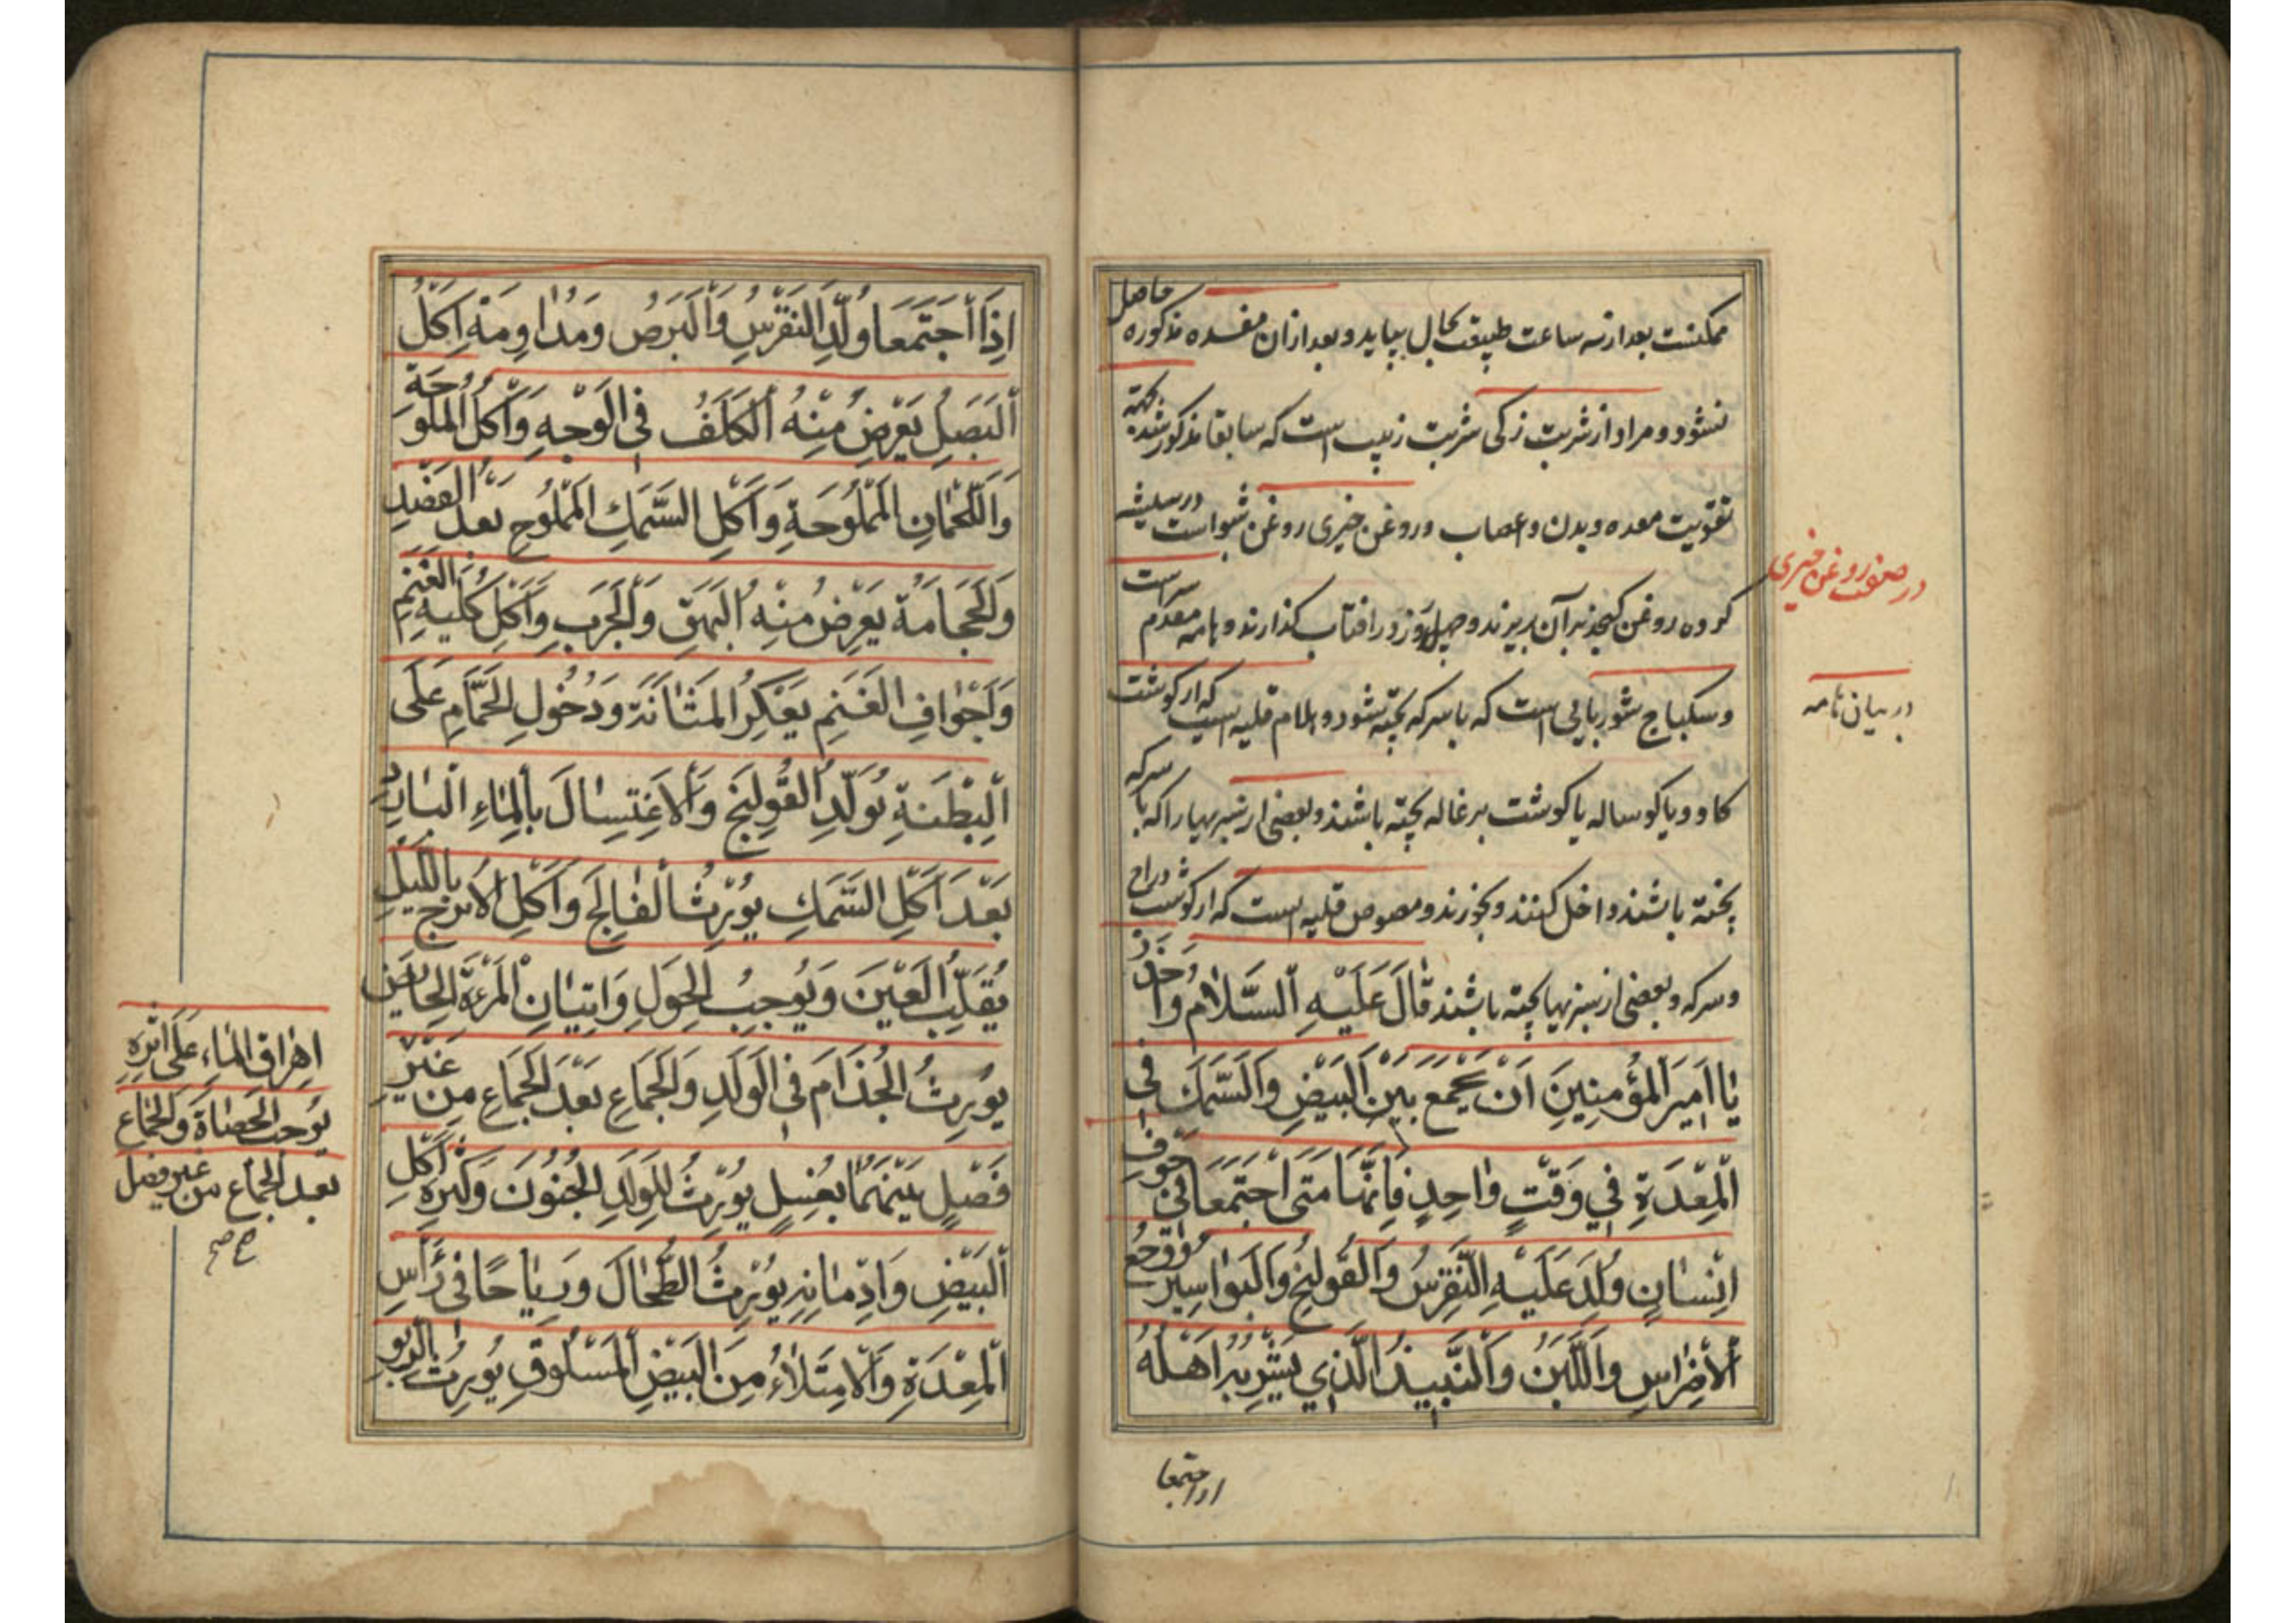 ممکنست بعد از سه ساعت طبیعت بحال بیاید و بعد از آن مفسده مذکوره حاصل
نشود و مراد از شربت زکی شربت زبیب است که سابقا مذکور شد بجهة
تقویت معده و بدن و اعصاب و روغن خیری روغن شبو است در شیشه
کرده روغن کنجد بر آن بریزند و چهل روز در افتاب کذارند و هامه مقدم سر است
و سکباج شوربایی است که با سرکه پخته شود و هلام قلیه ایست که از کوشت
کاو و یا کوساله یا کوشت برغاله پخته باشند و بعضی از سبزیها را که با سرکه
پخته باشند داخل کنند و بخورند و مصوص قلیه ایست که از کوشت دراج
و سرکه و بعضی از سبزیها پخته باشند قَالَ عَلَيْهِ السَّلَامُ وَاحْذَرْ
يَا اَمِيرَ الْمُؤْمِنِينَ اَنْ تَجْمَعَ بَيْنَ الْبَيْضِ وَالسَّمَكِ فِي
الْمِعْدَةِ فِي وَقْتٍ وَاحِدٍ فَاِنَّهُمَا مَتَى اجْتَمَعَا فِي جَوْفِ
اِنْسَانٍ وُلِدَ عَلَيْهِ النِّقْرِسُ وَالْقُولَنْجُ وَالْبَوَاسِيرُ وَوَجَعُ
الْاَضْرَاسِ وَاللَّبَنُ وَالنَّبِيذُ الَّذِي يَشْرَبُهُ اَهْلُهُ
اذا اجتمعا
در صفت روغن خیری
در بیان هامه
اِذَا اجْتَمَعَا وَلَّدَ النِّقْرِسَ وَالْبَرَصَ وَمُدَاوَمَةُ اَكْلِ
الْبَصَلِ يَعْرِضُ مِنْهُ الْكَلَفُ فِي الْوَجْهِ وَاَكْلُ الْمُلُوحَةِ
وَاللُّحْمَانِ الْمَمْلُوحَةِ وَاَكْلِ السَّمَكِ الْمَمْلُوحِ بَعْدَ الْفَصْدِ
وَالْحِجَامَةِ يَعْرِضُ مِنْهُ الْبَهَقُ وَالْجَرَبُ وَاَكْلِ كُلْيَةِ الْغَنَمِ
وَاَجْوَافِ الْغَنَمِ يَعْكِرُ الْمَثَانَةَ وَدُخُولِ الْحَمَّامِ عَلَى
الْبِطْنَةِ يُوَلِّدُ الْقُولَنْجَ وَالْاِغْتِسَالَ بِالْمَاءِ الْبَارِدِ
بَعْدَ اَكْلِ السَّمَكِ يُورِثُ الْفَالِجَ وَاَكْلِ الْاُتْرُجِّ بِاللَّيْلِ
يُقَلِّبُ الْعَيْنَ وَيُوجِبُ الْحَوَلَ وَاِتْيَانِ الْمَرْءَةِ الْحَائِضِ
يُورِثُ الْجُذَامَ فِي الْوَلَدِ وَالْجِمَاعِ بَعْدَ الْجِمَاعِ مِنْ غَيْرِ
فَصْلٍ بَيْنَهُمَا بِغُسْلٍ يُورِثُ لِلْوَلَدِ الْجُنُونَ وَكَثْرَةِ اَكْلِ
الْبَيْضِ وَاِدْمَانِهِ يُورِثُ الطُّحَالَ وَرِيَاحًا فِي رَأْسِ
الْمِعْدَةِ وَالْاِمْتِلَاءُ مِنَ الْبَيْضِ الْمَسْلُوقِ يُورِثُ الرَّبْوَ
اهراق الماء على اثره
يوجب الحصاة والجماع
بعد الجماع من غير فصل